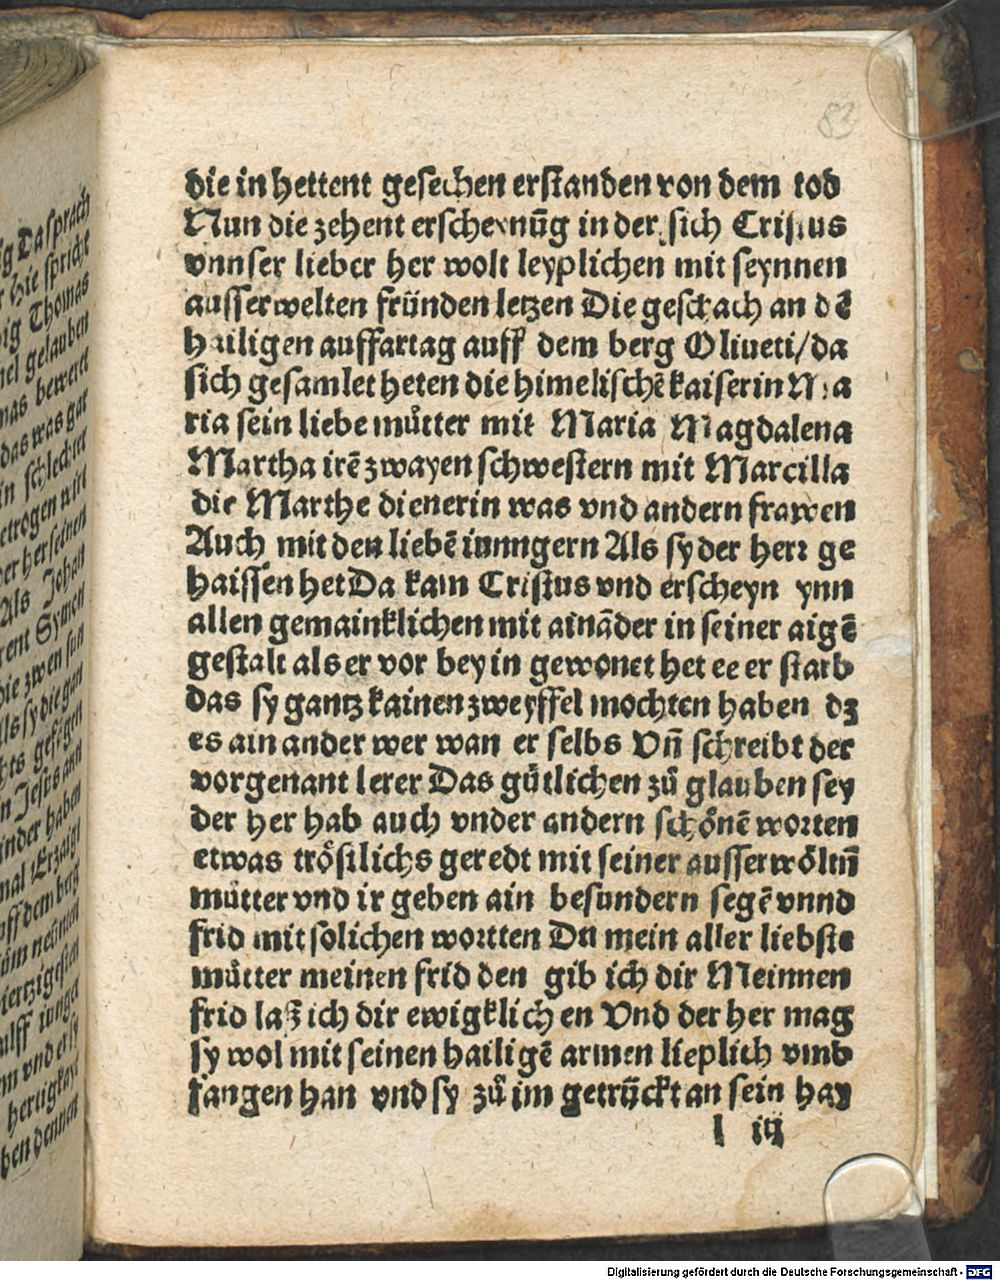 die in hettent gesechen erstanden von dem tod
Nun die zehent erscheynūg in der sich Cristus
vnnser lieber her wolt leyplichen mit seynnen
ausserwelten fründen letzen Die geschach an dē
hailigen auffartag auff dem berg Oliueti/da
sich gesamlet heten die himelischē kaiserin Ma
ria sein liebe muͤtter mit Maria Magdalena
Martha irē zwayen schwestern mit Marcilla
die Marthe dienerin was vnd andern frawen
Auch mit den liebē iunngern Als sy der herr ge
haissen het Da kam Cristus vnd erscheyn ynn
allen gemainklichen mit aināder in seiner aigē
gestalt als er vor bey in gewonet het ee er starb
das sy gantz kainen zweyffel mochten haben dz
es ain ander wer wan er selbs Vn̄ schreibt der
vorgenant lerer Das guͤtlichen zuͦ glauben sey
der her hab auch vnder andern schönē worten
etwas tröstlichs geredt mit seiner ausserwöltn̄
muͤtter vnd ir geben ain besundern segē vnnd
frid mit solichen wortten Du mein aller liebste
muͤtter meinen frid den gib ich dir Meinnen
frid laß ich dir ewigklichen Vnd der her mag
sy wol mit seinen hailigē armen lieplich vmb
fangen han vnd sy zuͦ im getrückt an sein hay
l iij
83
Da sprach
Hie spricht
Thomas
gelauben
beweret
das was gar
in schlecktet
etrogen wirt
her seinen
Als Johan
Symen
die zwen sun
als sy die gan
gefigen
Jesus
inder haben
mal Erzaigt
auff dem berg
nemen
iertzigesten
ulff iunger
vnd er sy
hertigkayt
ben dennen
Digitalisierung gefördert durch die Deutsche Forschungsgemeinschaft - DFG